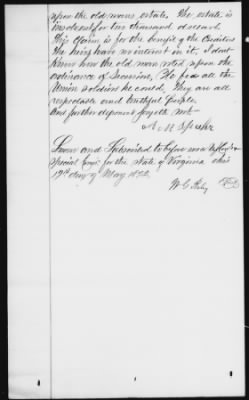 upon the old mans estate. The estate is
insolvent for two thousand dollars.
This Claim is for the benefit of the Creditors
The heirs have no interest in it. I dont
Know how the old man voted upon the
ordinance of Secession, He fed all the
Union soldiers he could. They are all
reputable and truthful People.
And further deponent sayeth not.
A R
Sworn and Subscribed to before me
Special Com for the State of Virginia this
19th day of May 187
W C